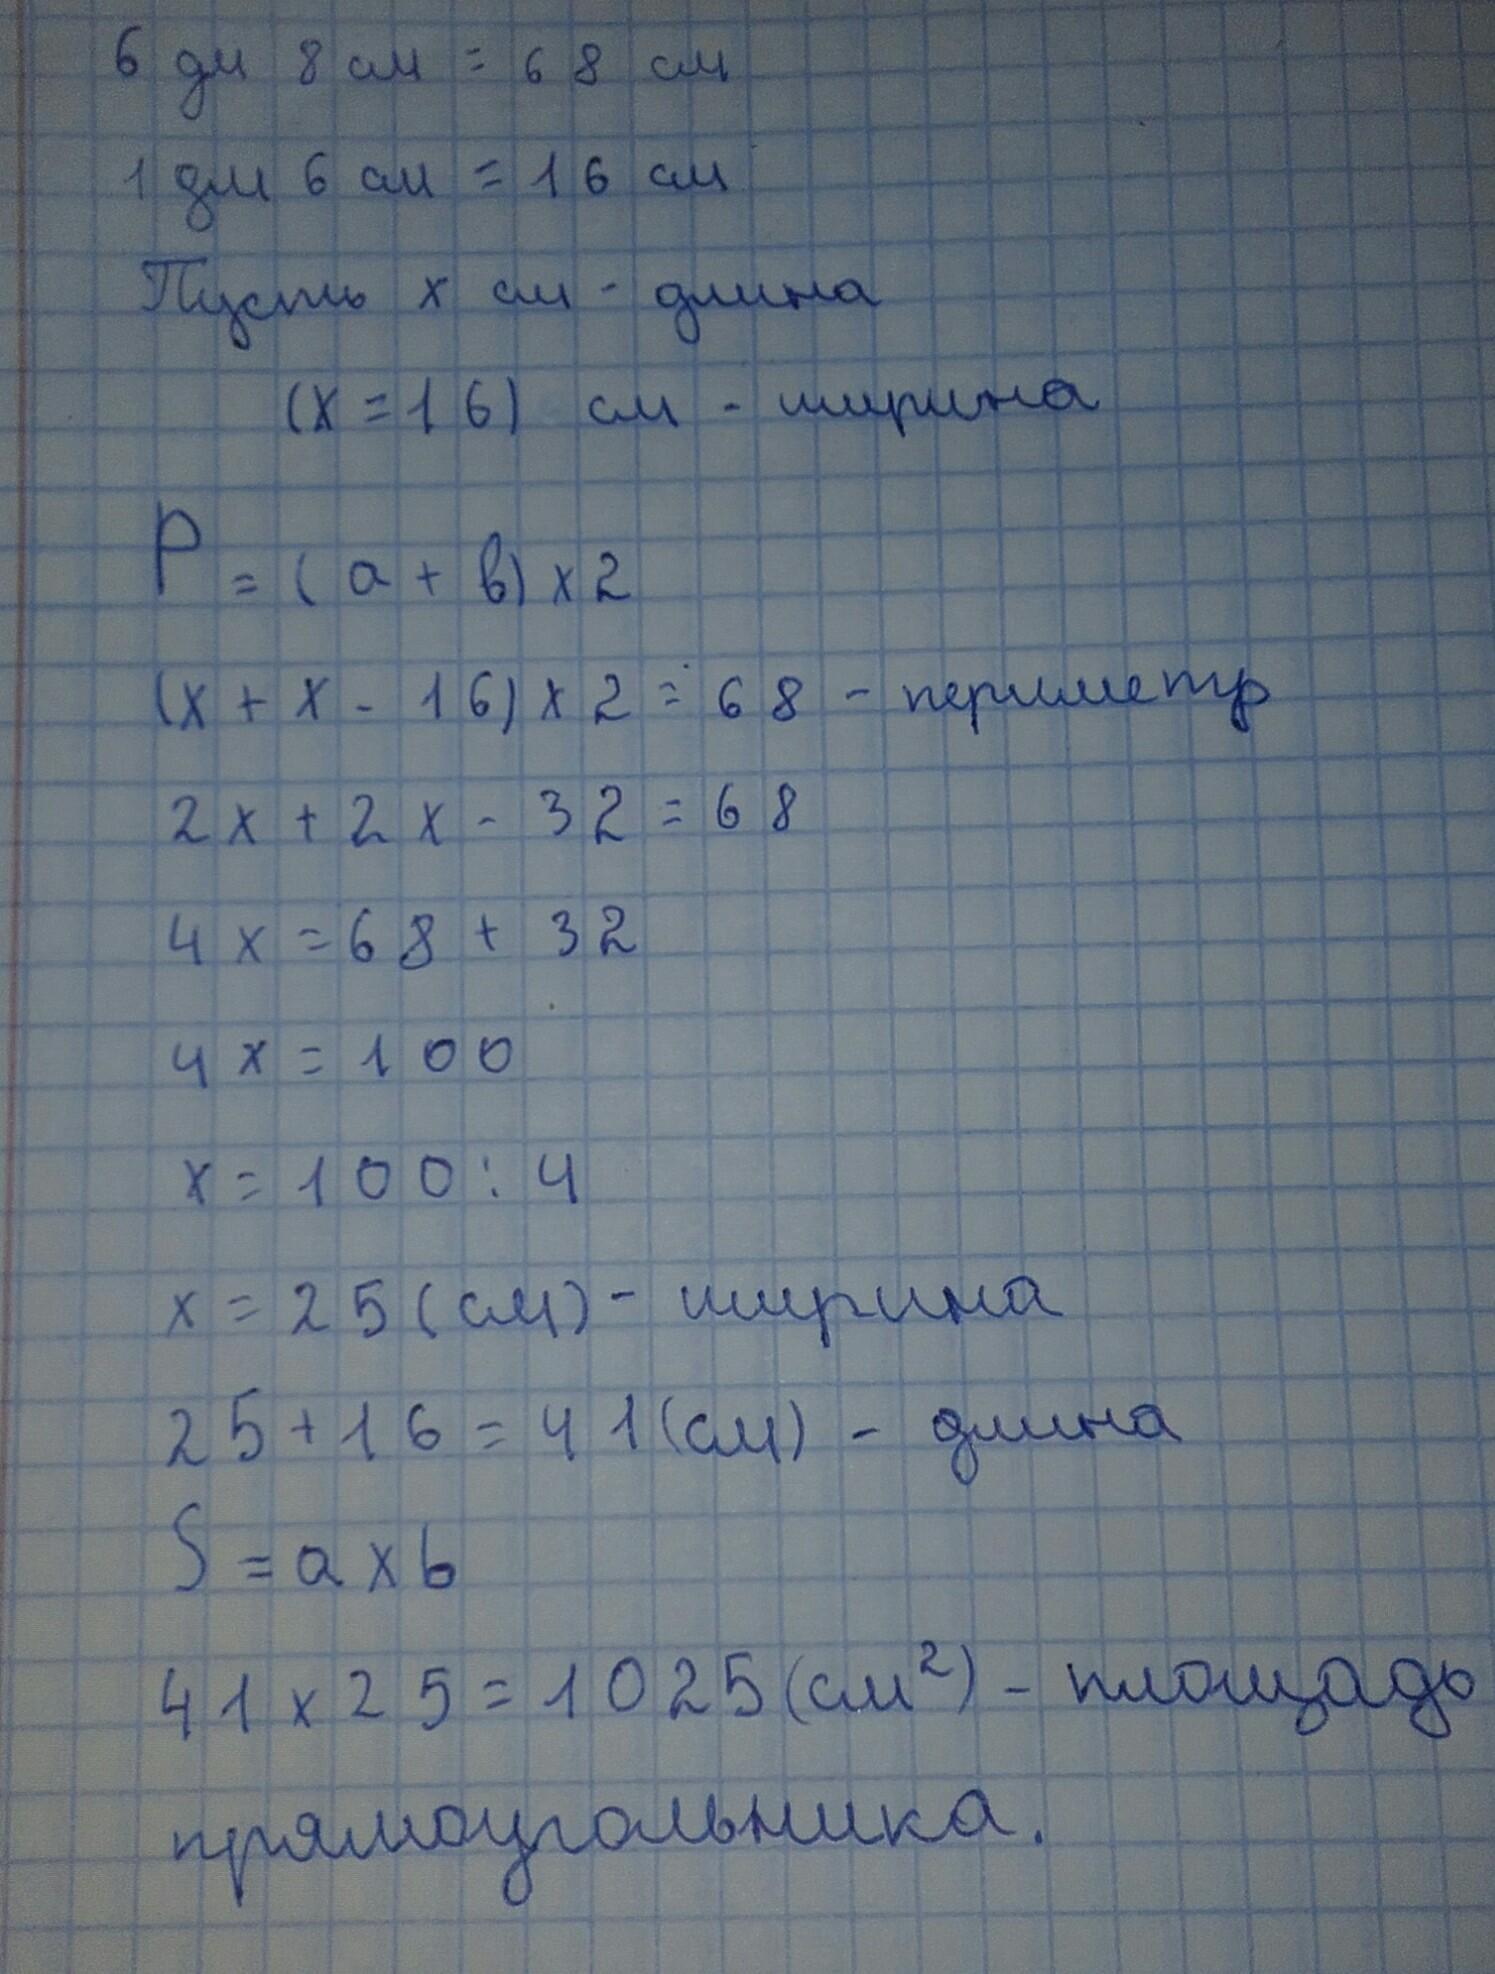 6 дм 8 см = 68 см
1 дм 6 см = 16 см
Пусть x см - длина
(x=16) см - ширина
P = (a + b) x 2
(x + x - 16) x 2 = 68 - периметр
2x + 2x - 32 = 68
4x = 68 + 32
4x = 100
x = 100 : 4
x = 25 (см) - ширина
25 + 16 = 41 (см) - длина
S = a x b
41 x 25 = 1025 (см²) - площадь
прямоугольника.